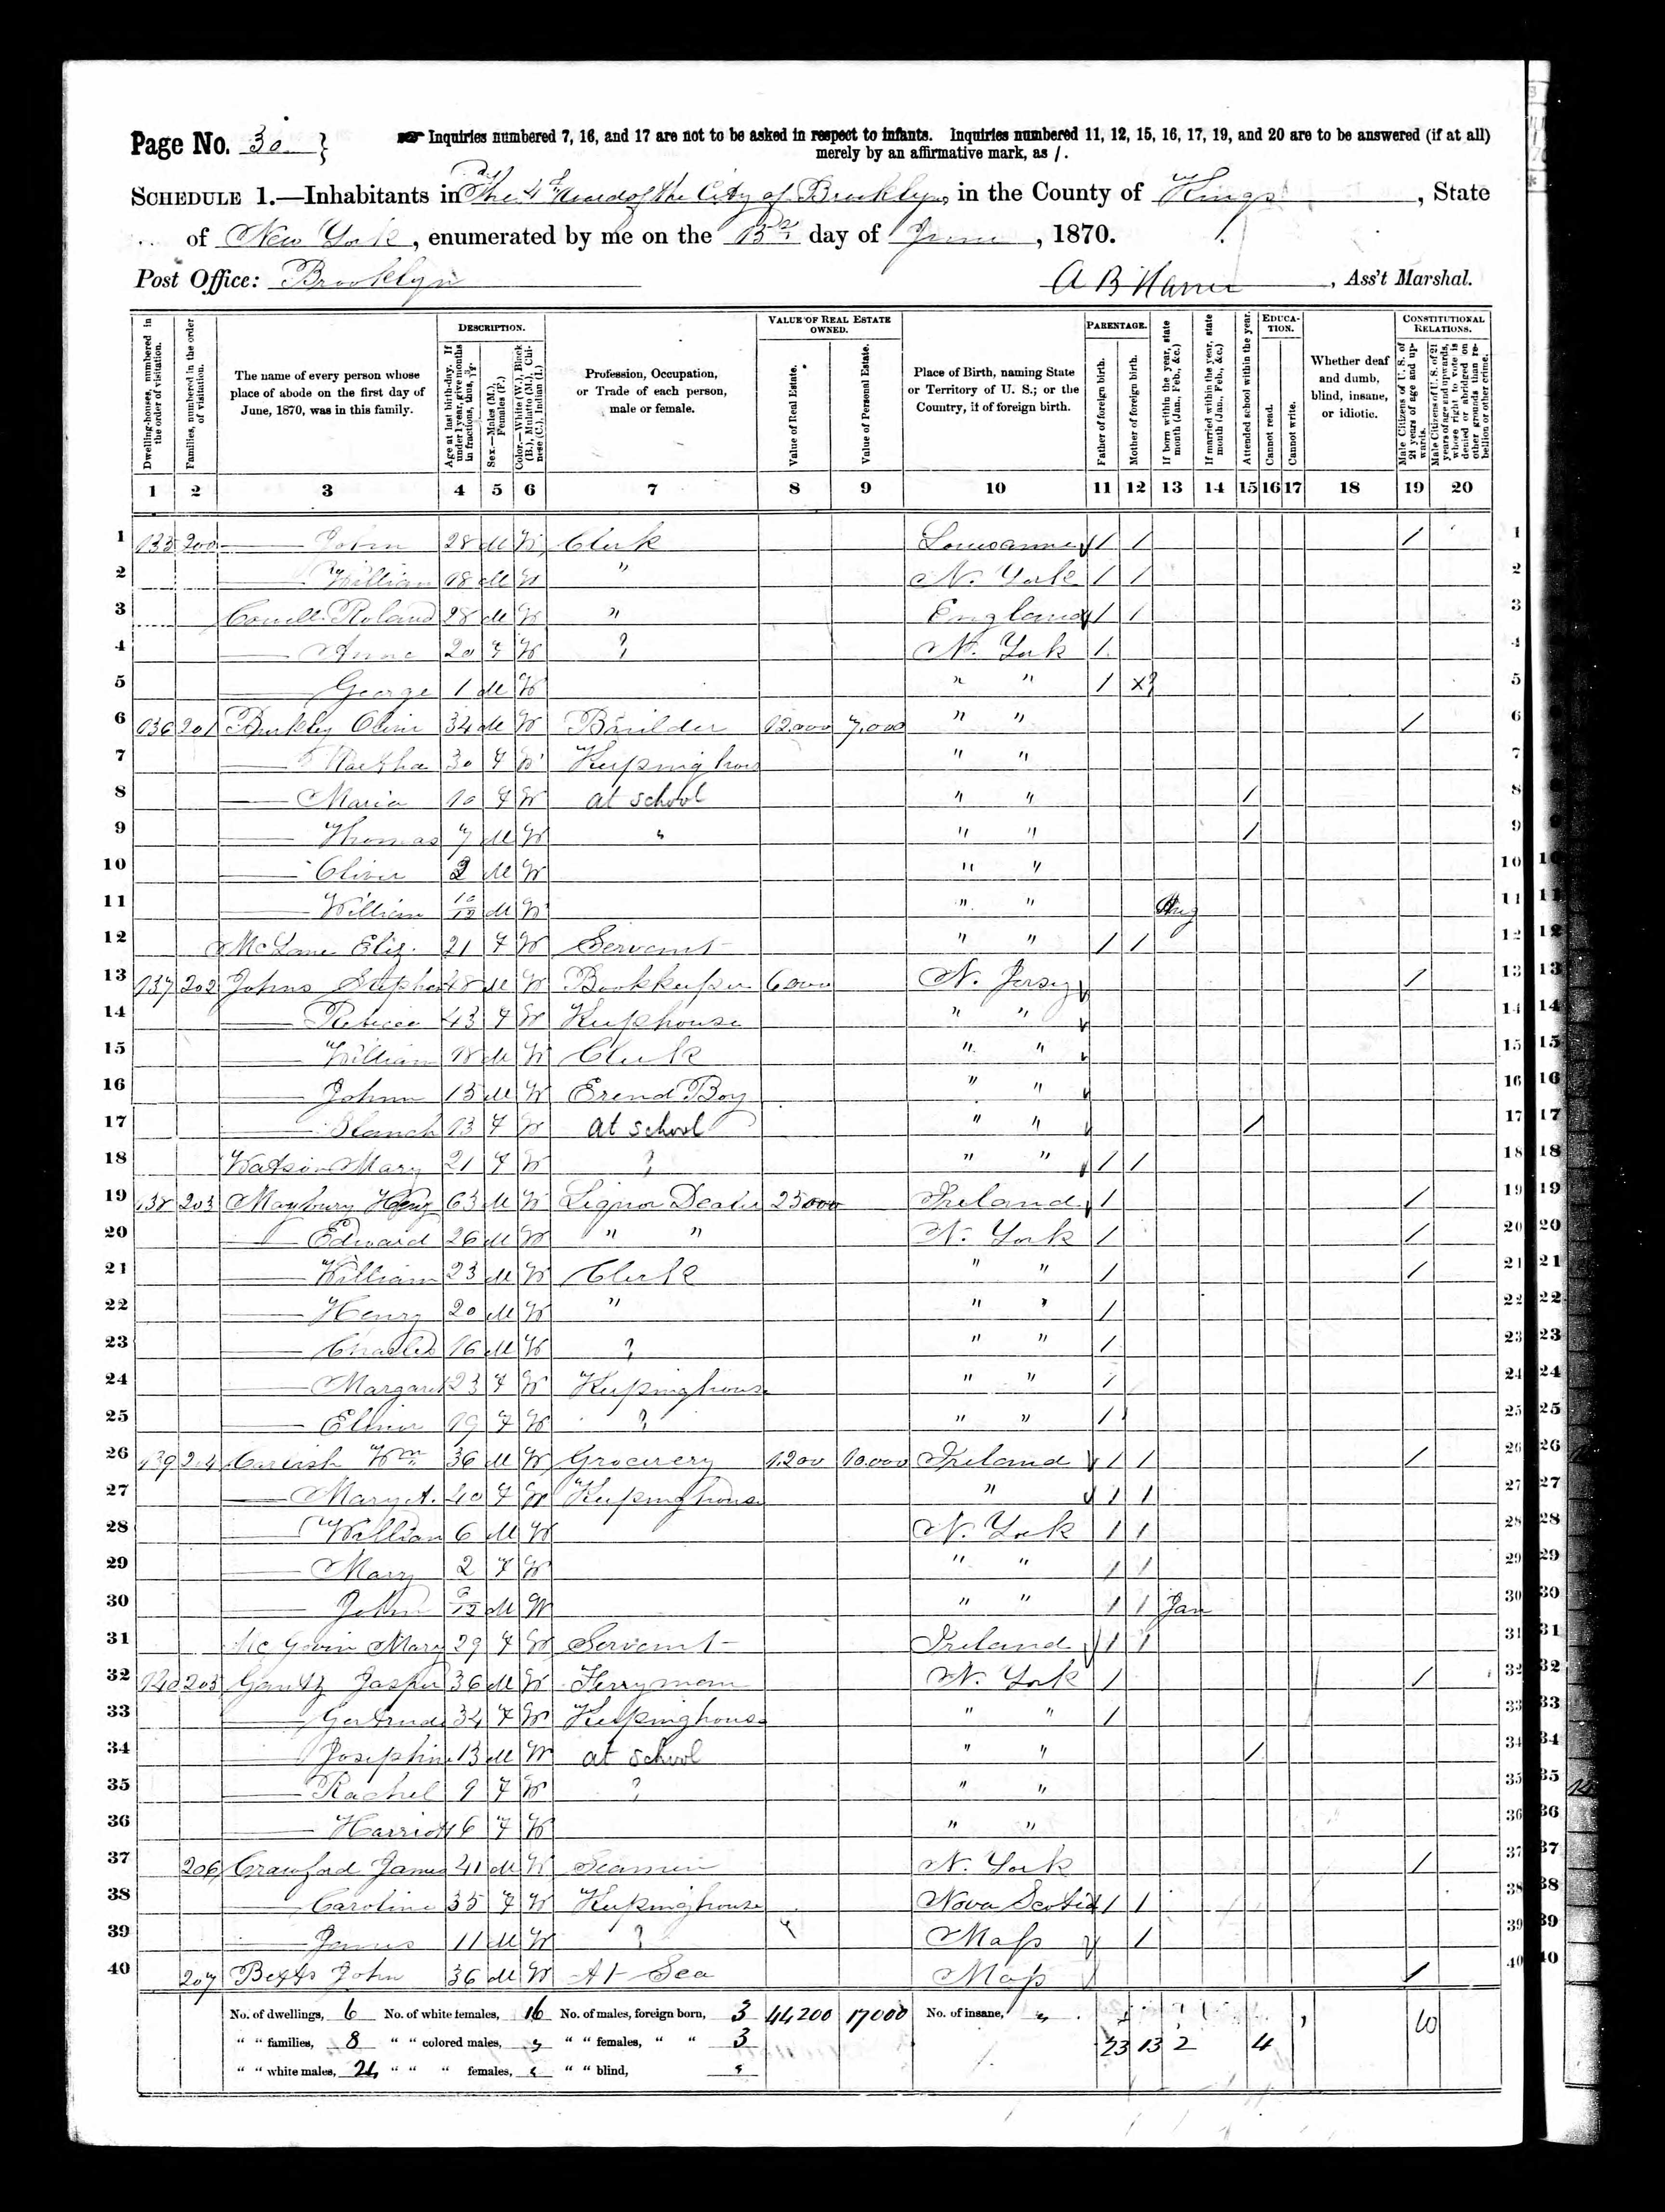 Page No. 30
Inquiries numbered 7, 16, and 17 are not to be asked in respect to infants. Inquiries numbered 11, 12, 15, 16, 17, 19, and 20 are to be answered (if at all)
merely by an affirmative mark, as /.
SCHEDULE 1.—Inhabitants in The 4th Ward of the City of Brooklyn, in the County of Kings, State
of New York, enumerated by me on the day of June, 1870.
Post Office: Brooklyn A B, Ass't Marshal.
Dwelling-houses, numbered in the order of visitation.
Families, numbered in the order of visitation.
The name of every person whose place of abode on the first day of June, 1870, was in this family.
DESCRIPTION.
Age at last birth-day. If under 1 year, give months in fractions, thus, 3/12.
Sex.—Males (M.), Females (F.)
Color.—White (W.), Black (B.), Mulatto (M.), Chinese (C.), Indian (I.)
Profession, Occupation, or Trade of each person, male or female.
VALUE OF REAL ESTATE OWNED.
Value of Real Estate.
Value of Personal Estate.
Place of Birth, naming State or Territory of U. S.; or the Country, if of foreign birth.
PARENTAGE.
Father of foreign birth.
Mother of foreign birth.
If born within the year, state month (Jan., Feb., &c.)
If married within the year, state month (Jan., Feb., &c.)
Attended school within the year.
EDUCATION.
Cannot read.
Cannot write.
Whether deaf and dumb, blind, insane, or idiotic.
CONSTITUTIONAL RELATIONS.
Male Citizens of U. S. of 21 years of age and upwards.
Male Citizens of U. S. of 21 years of age and upwards, whose right to vote is denied or abridged on other grounds than rebellion or other crime.
1 2 3 4 5 6 7 8 9 10 11 12 13 14 15 16 17 18 19 20
1 135 200 — John 28 M W Clerk / / / 1
2 — William 18 M W " N. York / / 2
3 Roland 28 M W " England / / 3
4 — 20 F W ? N. York / 4
5 — George 1 M W " " / x? 5
6 136 201 34 M W Builder 12,000 7,000 " " / 6
7 — Martha 30 F W " " 7
8 — Maria 10 F W at school " " / 8
9 — Thomas 7 M W " " " / 9
10 — Oliver 2 M W " " 10
11 — William 10/12 M W " " Aug 11
12 McLane Eliz. 21 F W Servant " " / / 12
13 137 202 Johns Stephen 48 M W Bookkeeper 6000 N. Jersy / 13
14 — 43 F W Keep house " " 14
15 — William 18 M W Clerk " " 15
16 — John 15 M W Erend Boy " " 16
17 — Blanch 13 F W at school " " / 17
18 Watson Mary 21 F W ? " " / / 18
19 138 203 Maybury 63 M W Liquor Dealer 25000 Ireland / / 19
20 — Edward 26 M W " " N. York / / 20
21 — William 23 M W Clerk " " / / 21
22 — Henry 20 M W " " " / 22
23 — Charles 16 M W ? " " / 23
24 — Margaret 23 F W Keeping house " " / 24
25 — 19 F W ? " " / 25
26 139 204 Wm 36 M W 1.200 10.000 Ireland / / / 26
27 — Mary A. 40 F W Keeping house " / / 27
28 — William 6 M W N. York / / 28
29 — Mary 2 F W " " / / 29
30 — John M W " " / / Jan 30
31 Mary 29 F W Servant Ireland / / 31
32 140 205 Gantz Jasper 36 M W Ferryman N. York / / 32
33 — Gertrude 34 F W Keeping house " " / 33
34 — Josephine 13 M W at school " " / 34
35 — Rachel 9 F W ? " " 35
36 — 6 F W " " 36
37 206 Crawford James 41 M W N. York / 37
38 — Caroline 35 F W Keeping house Nova Scotia / / 38
39 — James 11 M W ? Mass / 39
40 207 Betts John 36 M W At Sea Mass / 40
No. of dwellings, 6 No. of white females, 16 No. of males, foreign born, 3 44200 17000 No. of insane,
" " families, 8 " " colored males, " " females, " " 3 23 13 2 4 10
" " white males, 24 " " " females, " " blind,